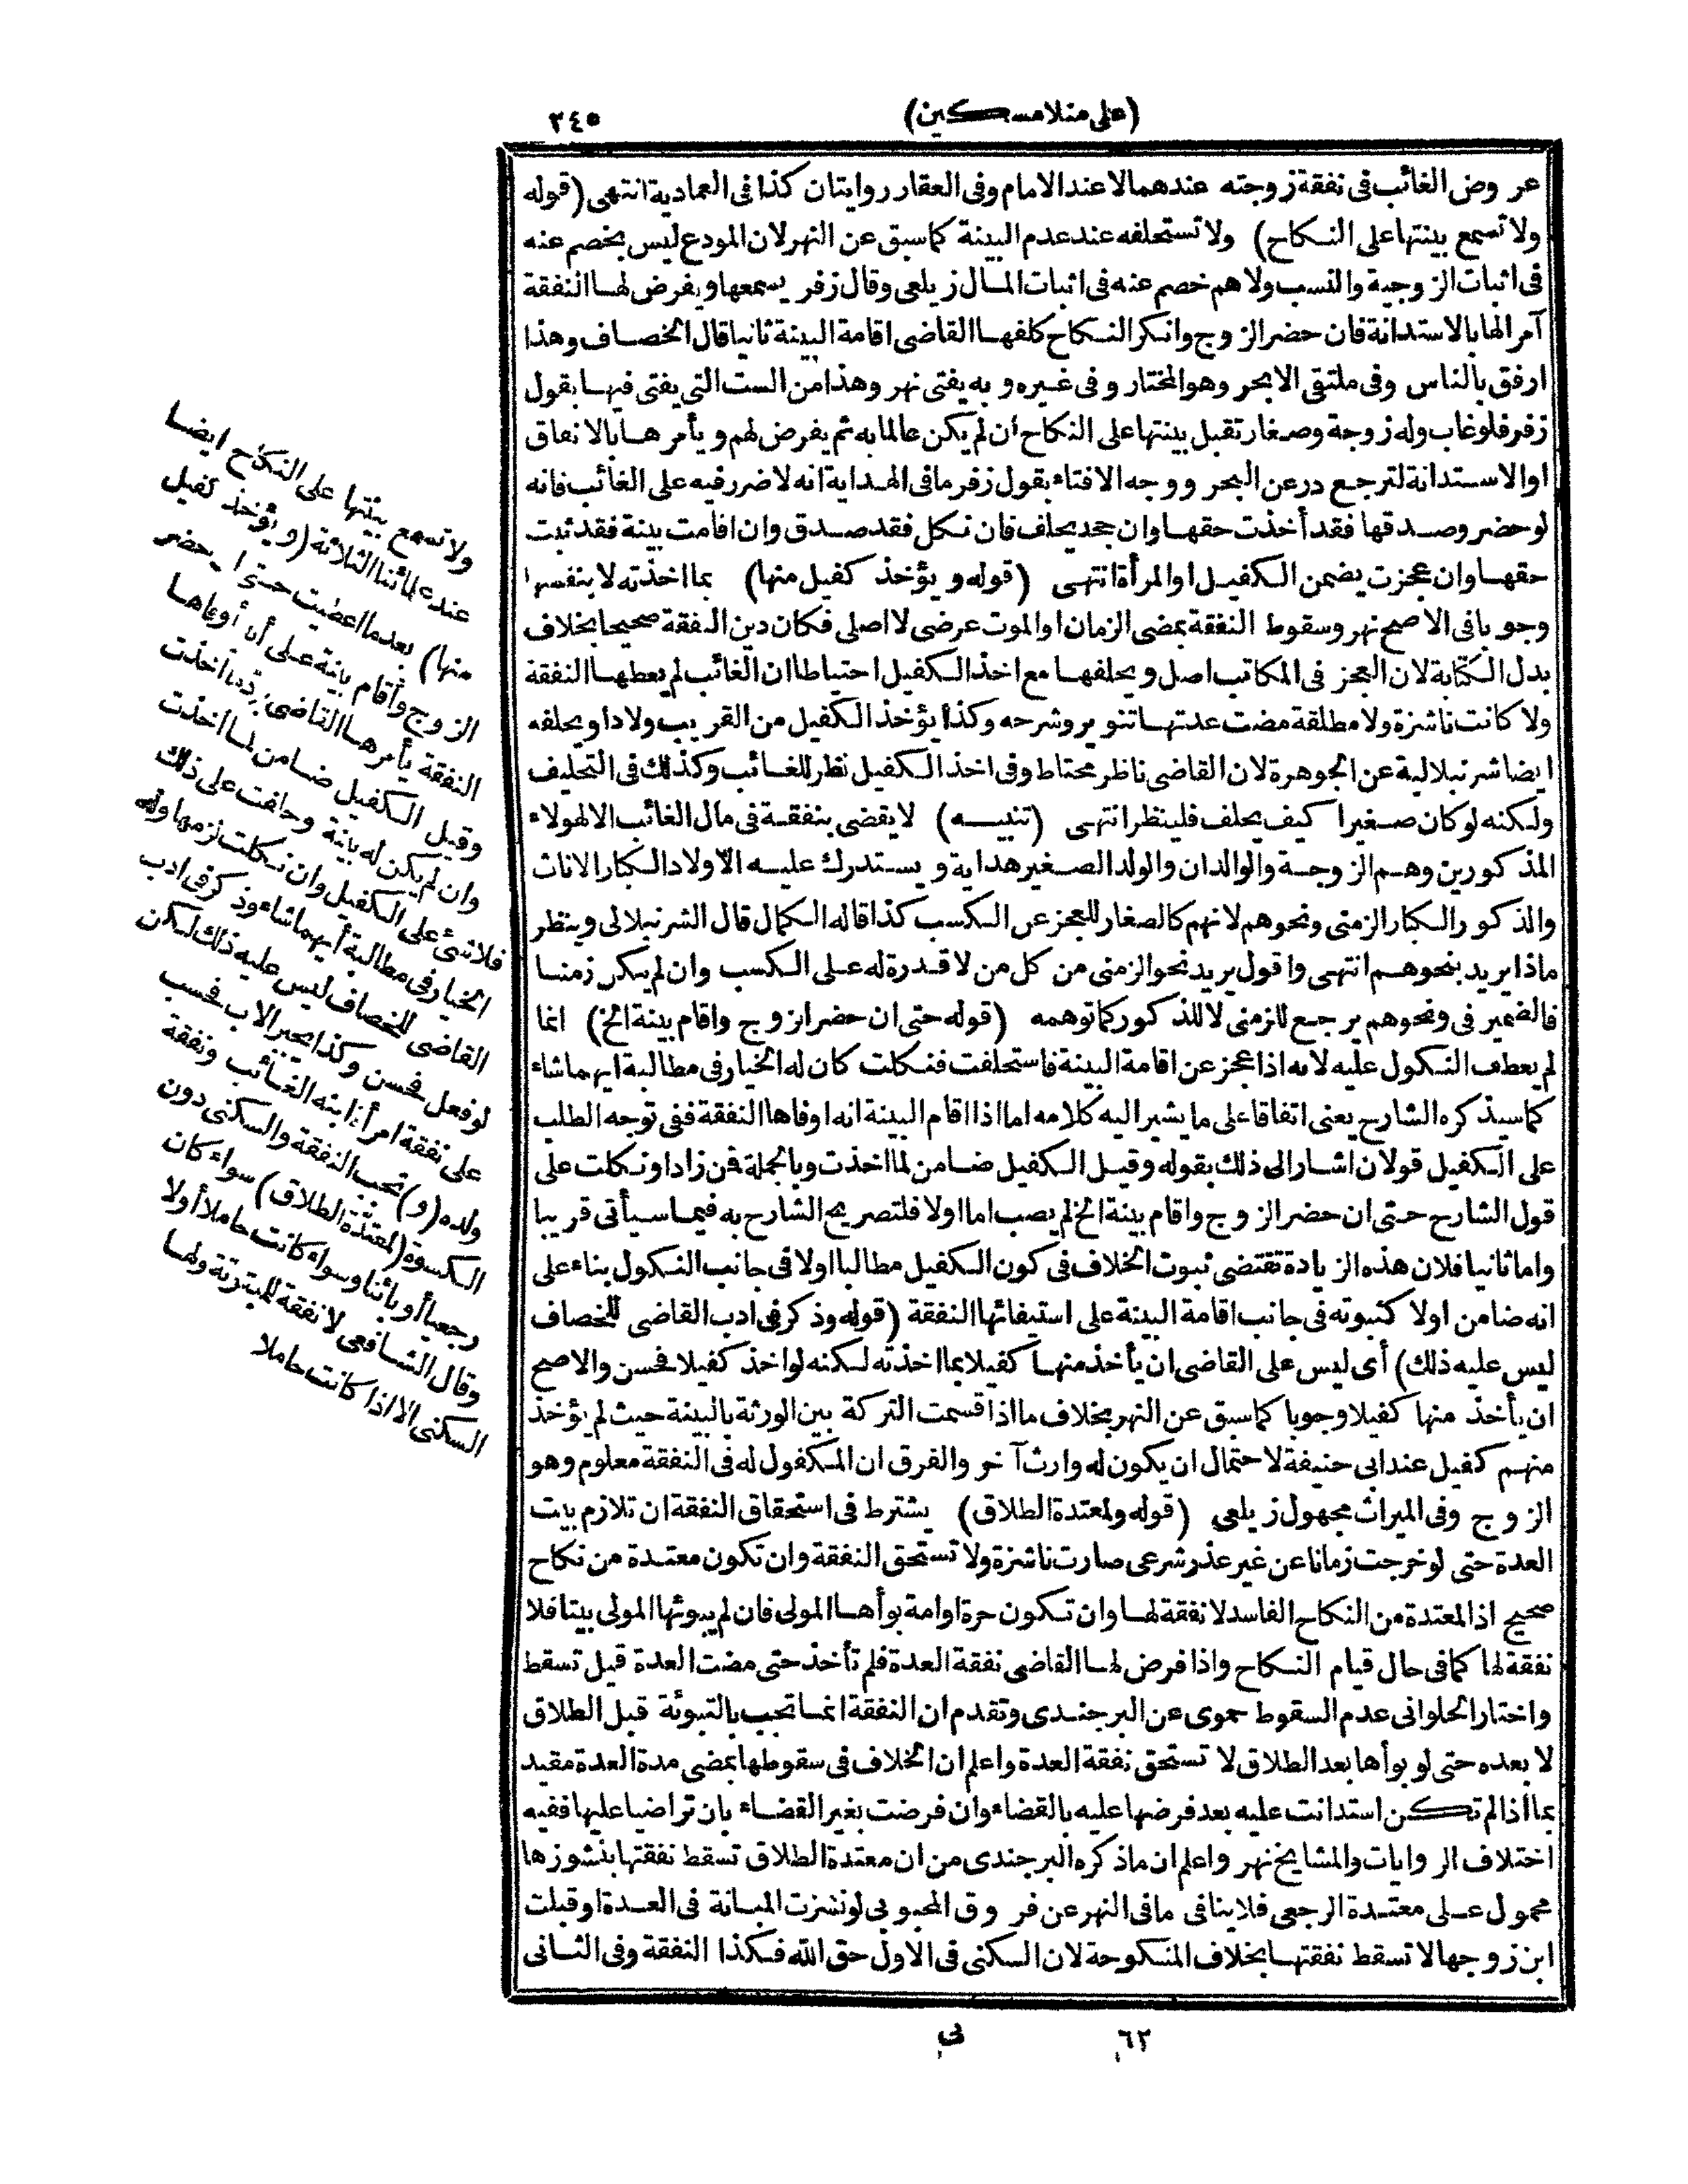 (على منلا مسكين)
٣٤٥
عروض الغائب فى نفقة زوجته عندهما لا عند الامام وفى العقار روايتان كذا فى العمادية انتهى (قوله
ولا تسمع بينتها على النكاح) ولا تستحلفه عند عدم البينة كما سبق عن النهر لان المودع ليس بخصم عنه
فى اثبات الزوجية والنسب ولا هم خصم عنه فى اثبات المال زيلعى وقال زفر يسمعها ويفرض لها النفقة
آمرا لها بالاستدانة فان حضر الزوج وانكر النكاح كلفها القاضى اقامة البينة ثانيا قال الخصاف وهذا
ارفق بالناس وفى ملتقى الابحر وهو المختار وفى غيره وبه يفتى نهر وهذا من الست التى يفتى فيها بقول
زفر فلو غاب وله زوجة وصغار تقبل بينتها على النكاح ان لم يكن عالما به ثم يفرض لهم ويأمرها بالانفاق
او الاستدانة لترجع در عن البحر ووجه الافتاء بقول زفر ما فى الهداية انه لا ضرر فيه على الغائب فانه
لو حضر وصدقها فقد أخذت حقها وان جحد يحلف فان نكل فقد صدق وان اقامت بينة فقد ثبت
حقها وان عجزت يضمن الكفيل او المرأة انتهى (قوله ويؤخذ كفيل منها) بما اخذته لا بنفسها
وجوبا فى الاصح نهر وسقوط النفقة بمضى الزمان او الموت عرضى لا اصلى فكان دين النفقة صحيحا بخلاف
بدل الكتابة لان العجز فى المكاتب اصل ويحلفها مع اخذ الكفيل احتياطا ان الغائب لم يعطها النفقة
ولا كانت ناشزة ولا مطلقة مضت عدتها تنوير وشرحه وكذا يؤخذ الكفيل من القريب ولادا ويحلفه
ايضا شرنبلالية عن الجوهرة لان القاضى ناظر محتاط وفى اخذ الكفيل نظر للغائب وكذلك فى التحليف
ولكنه لو كان صغيرا كيف يحلف فلينظر انتهى (تنبيه) لا يقضى بنفقة فى مال الغائب الا لهولاء
المذكورين وهم الزوجة والوالدان والولد الصغير هداية ويستدرك عليه الاولاد الكبار الاناث
والذكور الكبار الزمنى ونحوهم لانهم كالصغار للعجز عن الكسب كذا قاله الكمال قال الشرنبلالى وينظر
ماذا يريد بنحوهم انتهى واقول يريد نحو الزمنى من كل من لا قدرة له على الكسب وان لم يكن زمنا
فالضمير فى ونحوهم يرجع للزمنى لا للذكور كما توهمه (قوله حتى ان حضر الزوج واقام بينة الخ) انما
لم يعطف النكول عليه لانه اذا عجز عن اقامة البينة فاستحلفت فنكلت كان له الخيار فى مطالبة ايهما شاء
كما سيذكره الشارح يعنى اتفاقا على ما يشير اليه كلامه اما اذا اقام البينة انه اوفاها النفقة ففى توجه الطلب
على الكفيل قولان اشار الى ذلك بقوله وقيل الكفيل ضامن لما اخذت وبالجملة فمن زاد او نكلت على
قول الشارح حتى ان حضر الزوج واقام بينة الخ لم يصب اما اولا فلتصريح الشارح به فيما سيأتى قريبا
واما ثانيا فلان هذه الزيادة تقتضى ثبوت الخلاف فى كون الكفيل مطالبا اولا فى جانب النكول بناء على
انه ضامن اولا كثبوته فى جانب اقامة البينة على استيفائها النفقة (قوله وذكر فى ادب القاضى للخصاف
ليس عليه ذلك) أى ليس على القاضى ان يأخذ منها كفيلا بما اخذته لكنه لو اخذ كفيلا فحسن والاصح
ان يأخذ منها كفيلا وجوبا كما سبق عن النهر بخلاف ما اذا قسمت التركة بين الورثة بالبينة حيث لم يؤخذ
منهم كفيل عند ابى حنيفة لاحتمال ان يكون له وارث آخر والفرق ان المكفول له فى النفقة معلوم وهو
الزوج وفى الميراث مجهول زيلعى (قوله ولمعتدة الطلاق) يشترط فى استحقاق النفقة ان تلازم بيت
العدة حتى لو خرجت زمانا عن غير عذر شرعى صارت ناشزة ولا تستحق النفقة وان تكون معتدة من نكاح
صحيح اذ المعتدة من النكاح الفاسد لا نفقة لها وان تكون حرة او امة بوأها المولى فان لم يبوئها المولى بيتا فلا
نفقة لها كما فى حال قيام النكاح واذا فرض لها القاضى نفقة العدة فلم تأخذ حتى مضت العدة قيل تسقط
واختار الحلوانى عدم السقوط حموى عن البرجندى وتقدم ان النفقة انما تجب بالتبوئة قبل الطلاق
لا بعده حتى لو بوأها بعد الطلاق لا تستحق نفقة العدة واعلم ان الخلاف فى سقوطها بمضى مدة العدة مقيد
بما اذا لم تكن استدانت عليه بعد فرضها عليه بالقضاء وان فرضت بغير القضاء بان تراضيا عليها ففيه
اختلاف الروايات والمشايخ نهر واعلم ان ما ذكره البرجندى من ان معتدة الطلاق تسقط نفقتها بنشوزها
محمول على معتدة الرجعى فلا ينافى ما فى النهر عن فروق المحبوبى لو نشزت المبانة فى العدة او قبلت
ابن زوجها لا تسقط نفقتها بخلاف المنكوحة لان السكنى فى الاول حق الله فكذا النفقة وفى الثانى
ولا تسمع بينتها على النكاح ايضا
عند علمائنا الثلاثة (ويؤخذ كفيل
منها) بعدما اعطيت حتى ا يحضر
الزوج وأقام بينة على أن أوفاها
النفقة يأمرها القاضى برد ما أخذت
وقيل الكفيل ضامن لما أخذت
وان لم يكن له بينة وحلفت على ذلك
فلا شئ على الكفيل وان نكلت لزمها وله
الخيار فى مطالبة أيهما شاء وذكر فى ادب
القاضى للخصاف ليس عليه ذلك لكن
لو فعل فحسن وكذا يجبر الاب فحسب
على نفقة امرأة ابنه الغائب ونفقة
ولده (و) تجب النفقة والسكنى دون
الكسوة (لمعتدة الطلاق) سواء كان
رجعيا أو بائنا وسواء كانت حاملا أو لا
وقال الشافعى لا نفقة للمبتوتة ولها
السكنى الا اذا كانت حاملا
٦٢
نى